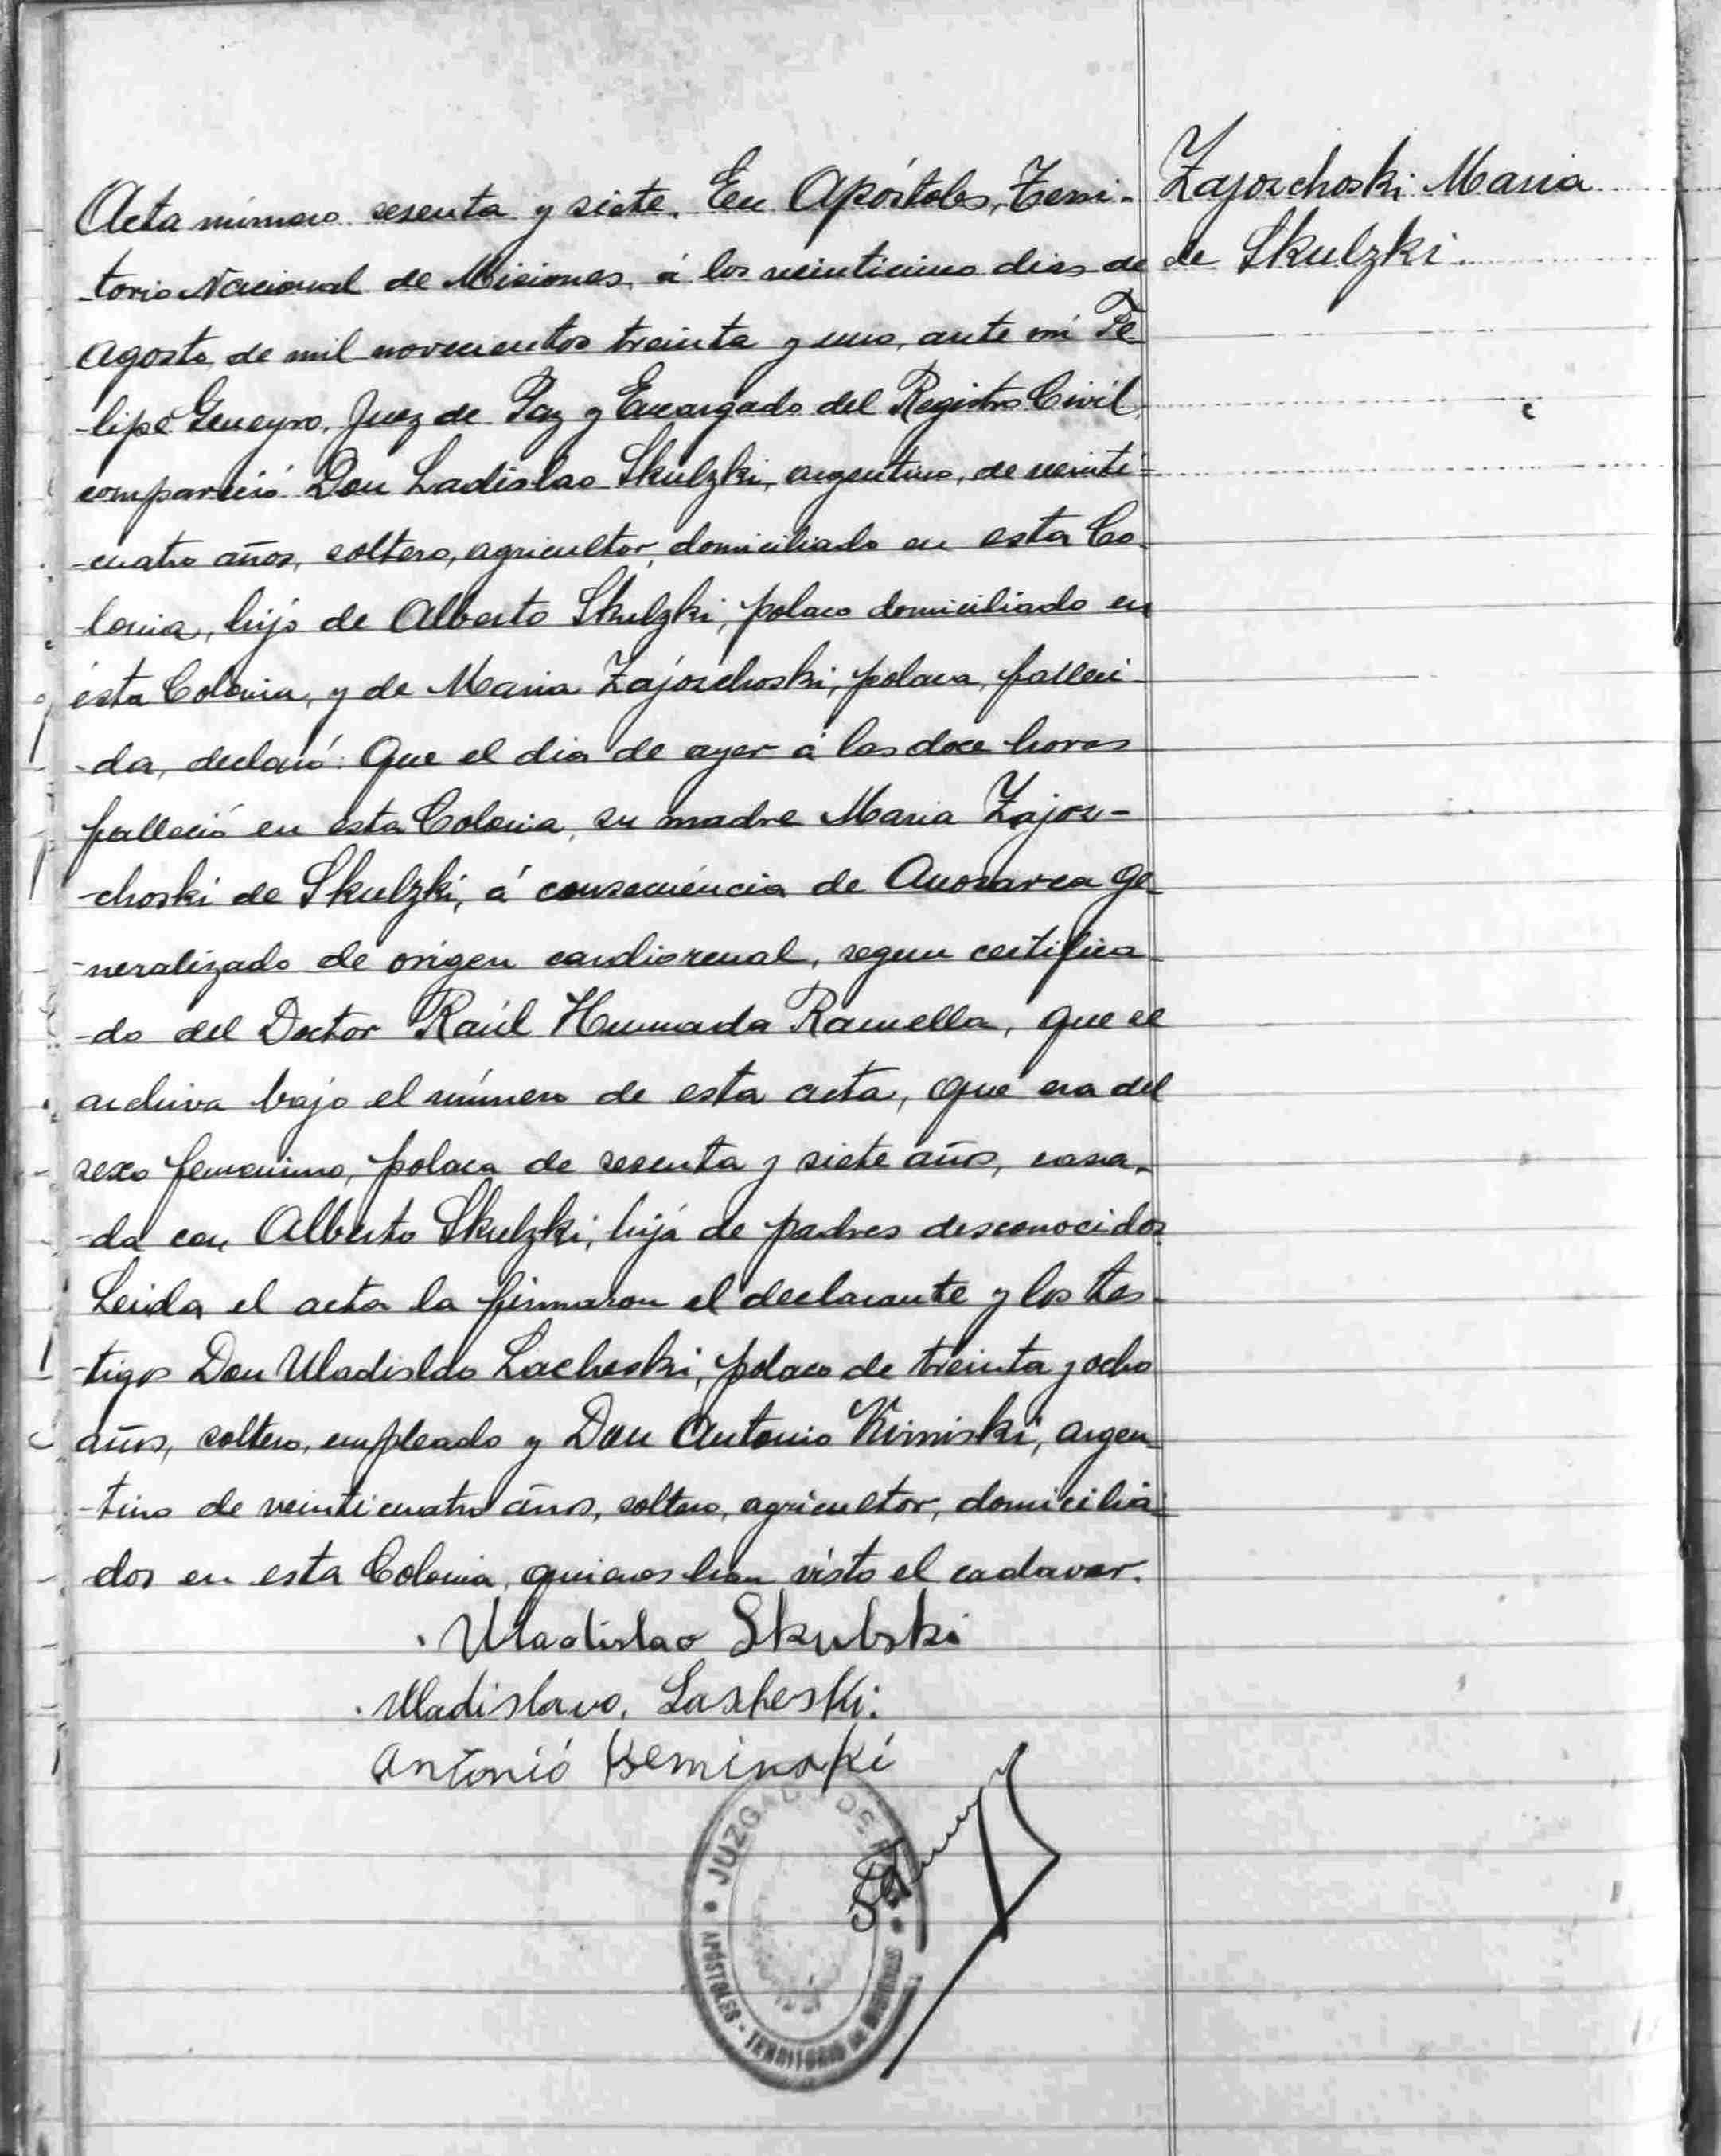 Acta número sesenta y siete. En Apóstoles, Terri-
-torio Nacional de Misiones, á los veinticinco dias de
Agosto de mil novecientos treinta y uno, ante mí Fe-
-lipe Geneyro, Juez de Paz y Encargado del Registro Civil,
compareció Don Ladislao Skulzki, argentino, de veinti-
-cuatro años, soltero, agricultor, domiciliado en esta Co-
-lonia, hijo de Alberto Skulzki, polaco domiciliado en
ésta Colonia, y de Maria Zajoschoski, polaca, falleci-
-da, declaró: Que el dia de ayer á las doce horas
falleció en esta Colonia, su madre Maria Zajos-
-choski de Skulzki, á consecuéncia de Anosarca ge-
-neralizado de origen cardiorenal, segun certifica-
-do del Doctor Raúl Humada Ramella, que se
archiva bajo el número de esta acta, que era del
sexo femenino, polaca de sesenta y siete años, casa-
-da con Alberto Skulzki, hija de padres desconocidos.
Leida el acta la firmaron el declarante y los tes-
-tigos Don Uladislao Lacheski, polaco de treinta y ocho
años, soltero, empleado y Don Antonio Kiminski, argen-
-tino de veinticuatro años, soltero, agricultor, domicilia-
dos en esta Colonia, quienes han visto el cadaver.
Uladislao Skulski
Uladislavo. Lasheski.
Antonió Keminski
Zajoschoski Maria
de Skulzki
JUZGADO DE
APÓSTOLES - TERRITORIO DE MISIONES